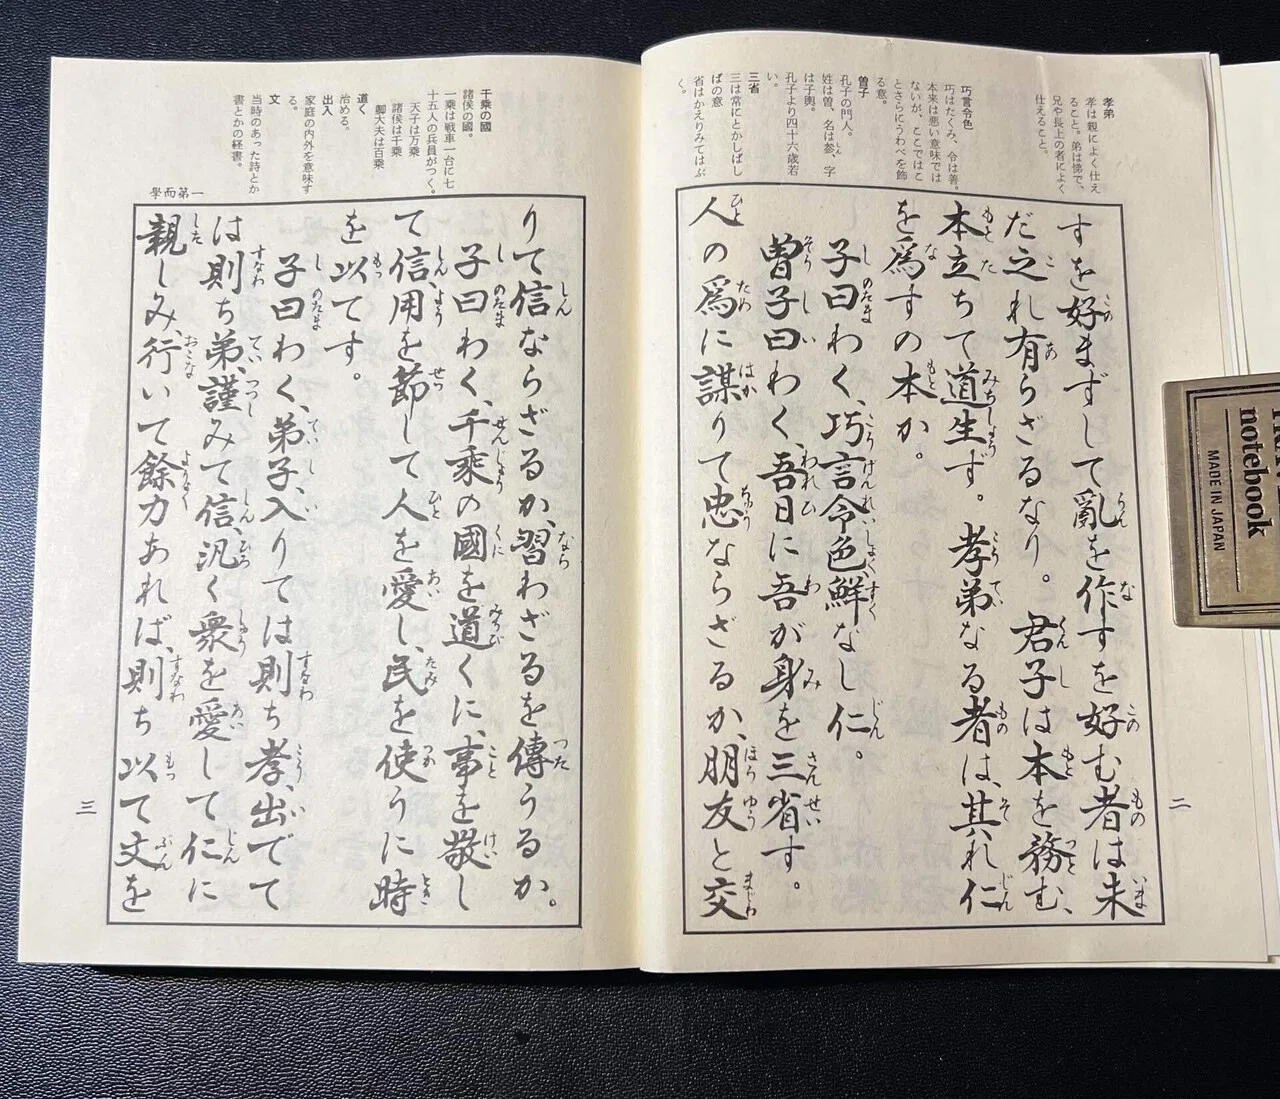 孝弟
孝は親によく仕え
ること。弟は悌で、
兄や長上の者によく
仕えること。
巧言令色
巧はたくみ、令は善。
本来は悪い意味では
ないが、ここではこ
とさらにうわべを飾
る意。
曽子
孔子の門人。
姓は曽、名は参、字
は子輿。
孔子より四十六歳若
い。
三省
三は常にとかしばし
ばの意
省はかえりみてはぶ
く。
すを好まずして亂を作すを好む者は未
だ之れ有らざるなり。君子は本を務む、
本立ちて道生ず。孝弟なる者は、其れ仁
を爲すの本か。
子曰わく、巧言令色鮮なし仁。
曽子曰わく、吾日に吾が身を三省す。
人の爲に謀りて忠ならざるか、朋友と交
二
千乗の國
諸侯の國。
一乗は戦車一台に七
十五人の兵員がつく。
天子は万乗
諸侯は千乗
卿大夫は百乗
道く
治める。
出入
家庭の内外を意味す
る。
文
当時のあった詩とか
書とかの経書。
學而第一
りて信ならざるか、習わざるを傳うるか。
子曰わく、千乘の國を道くに、事を敬し
て信、用を節して人を愛し、民を使うに時
を以てす。
子曰わく、弟子、入りては則ち孝、出でて
は則ち弟、謹みて信、汎く衆を愛して仁に
親しみ、行いて餘力あれば、則ち以て文を
三
notebook
MADE IN JAPAN